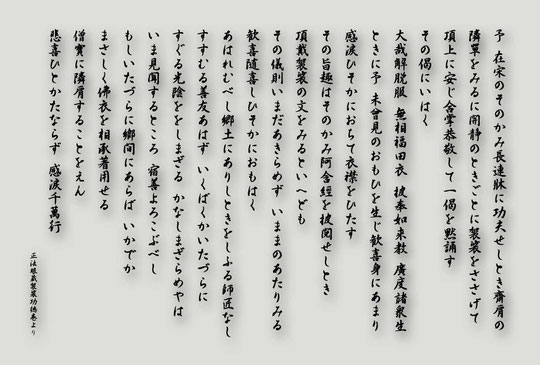 予 在宋のそのかみ長連牀に功夫せしとき齊肩の
隣單をみるに開靜のときごとに袈裟をささげて
頂上に安じ合掌恭敬して一偈を默誦す
その偈にいはく
大哉解脱服 無相福田衣 披奉如来教 廣度諸衆生
ときに予 未曾見のおもひを生じ歓喜身にあまり
感涙ひそかにおちて衣襟をひたす
その旨趣はそのかみ阿含經を披閲せしとき
頂戴袈裟の文をみるといへども
その儀則いまだあきらめず いままのあたりみる
歓喜随喜しひそかにおもはく
あはれむべし郷土にありしときをしふる師匠なし
すすむる善友あはず いくばくかいたづらに
すぐる光陰ををしまざる かなしまざらめやは
いま見聞するところ 宿善よろこぶべし
もしいたづらに郷間にあらば いかでか
まさしく佛衣を相承著用せる
僧寶に隣肩することをえん
悲喜ひとかたならず 感涙千萬行
正法眼蔵袈裟功徳巻より